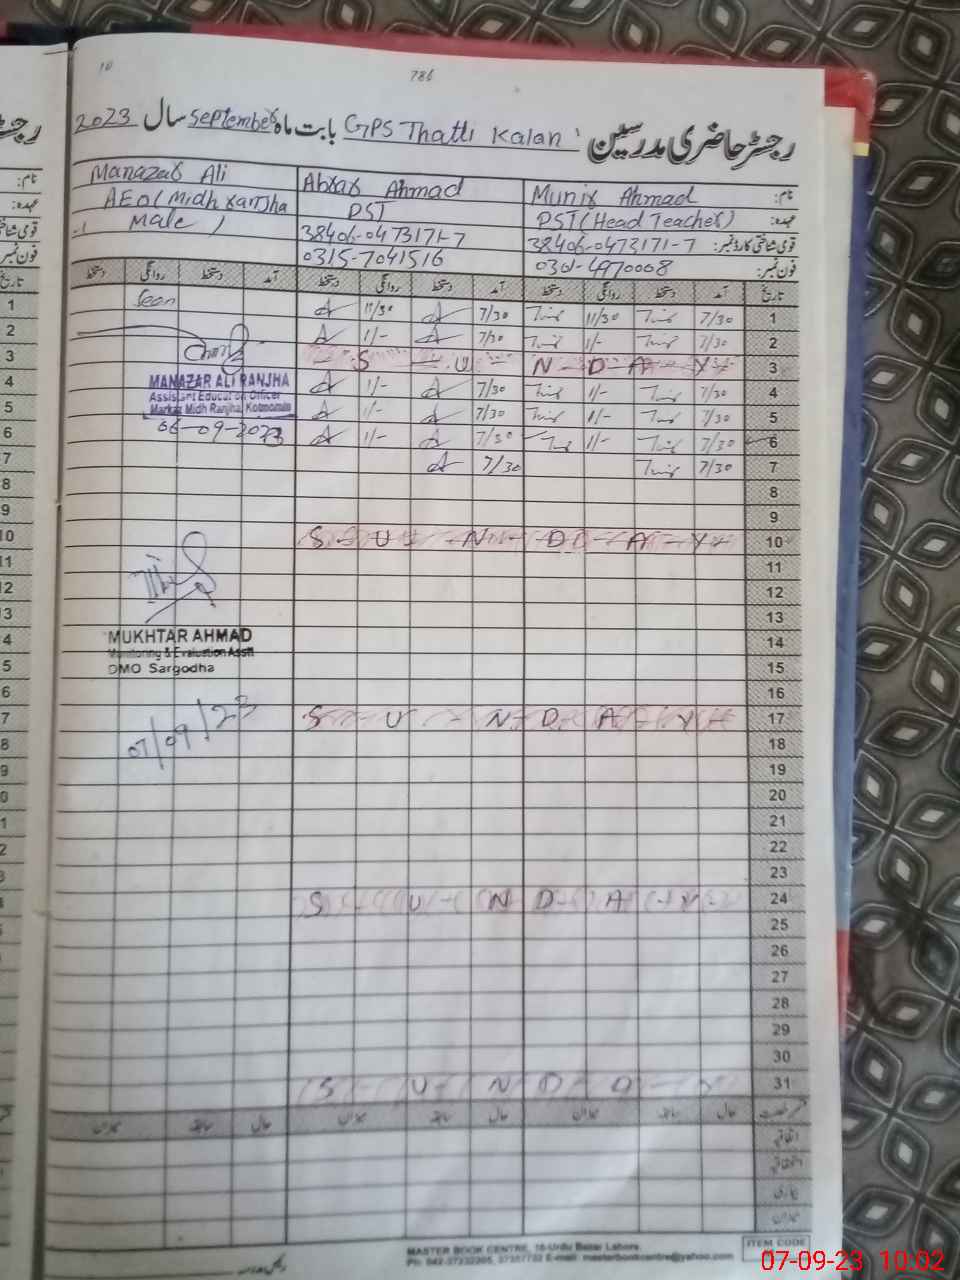 786
رجسٹر حاضری مدرسین GPS Thatti Kalan بابت ماہ September سال 2023
نام: Munir Ahmad Abrar Ahmad Manazar Ali
عہدہ: PST (Head Teacher) PST AEO (Midh Ranjha
Male)
قومی شناختی کارڈ نمبر: 38406-0473171-7 38406-0473171-7
فون نمبر: 0301-4970008 0315-7041516
تاریخ آمد دستخط روانگی دستخط آمد دستخط روانگی دستخط آمد دستخط روانگی دستخط
1 7/30 11/30 7/30 11/30 Seen
2 7/30 1/- 7/30 1/-
3 S U N D A Y
4 7/30 1/- 7/30 1/-
5 7/30 1/- 7/30 1/-
6 7/30 1/- 7/30 1/-
7 7/30 7/30
MANAZAR ALI RANJHA
Assistant Education Officer
Markaz Midh Ranjha, Kotmomin
06-09-2023
8
9
10 S U N D A Y
11
12
13
14
15
MUKHTAR AHMAD
Monitoring & Evaluation Asstt
DMO Sargodha
16
07/09/23
17 S U N D A Y
18
19
20
21
22
23
24 S U N D A Y
25
26
27
28
29
30
31 S U N D
حال سابقہ میزان حال سابقہ میزان حال سابقہ میزان
اتفاقیہ
استحقاقیہ
بیماری
میزان
MASTER BOOK CENTRE, 16-Urdu Bazar Lahore.
E-mail: masterbookcentre@yahoo.com
ITEM CODE
07-09-23 10:02